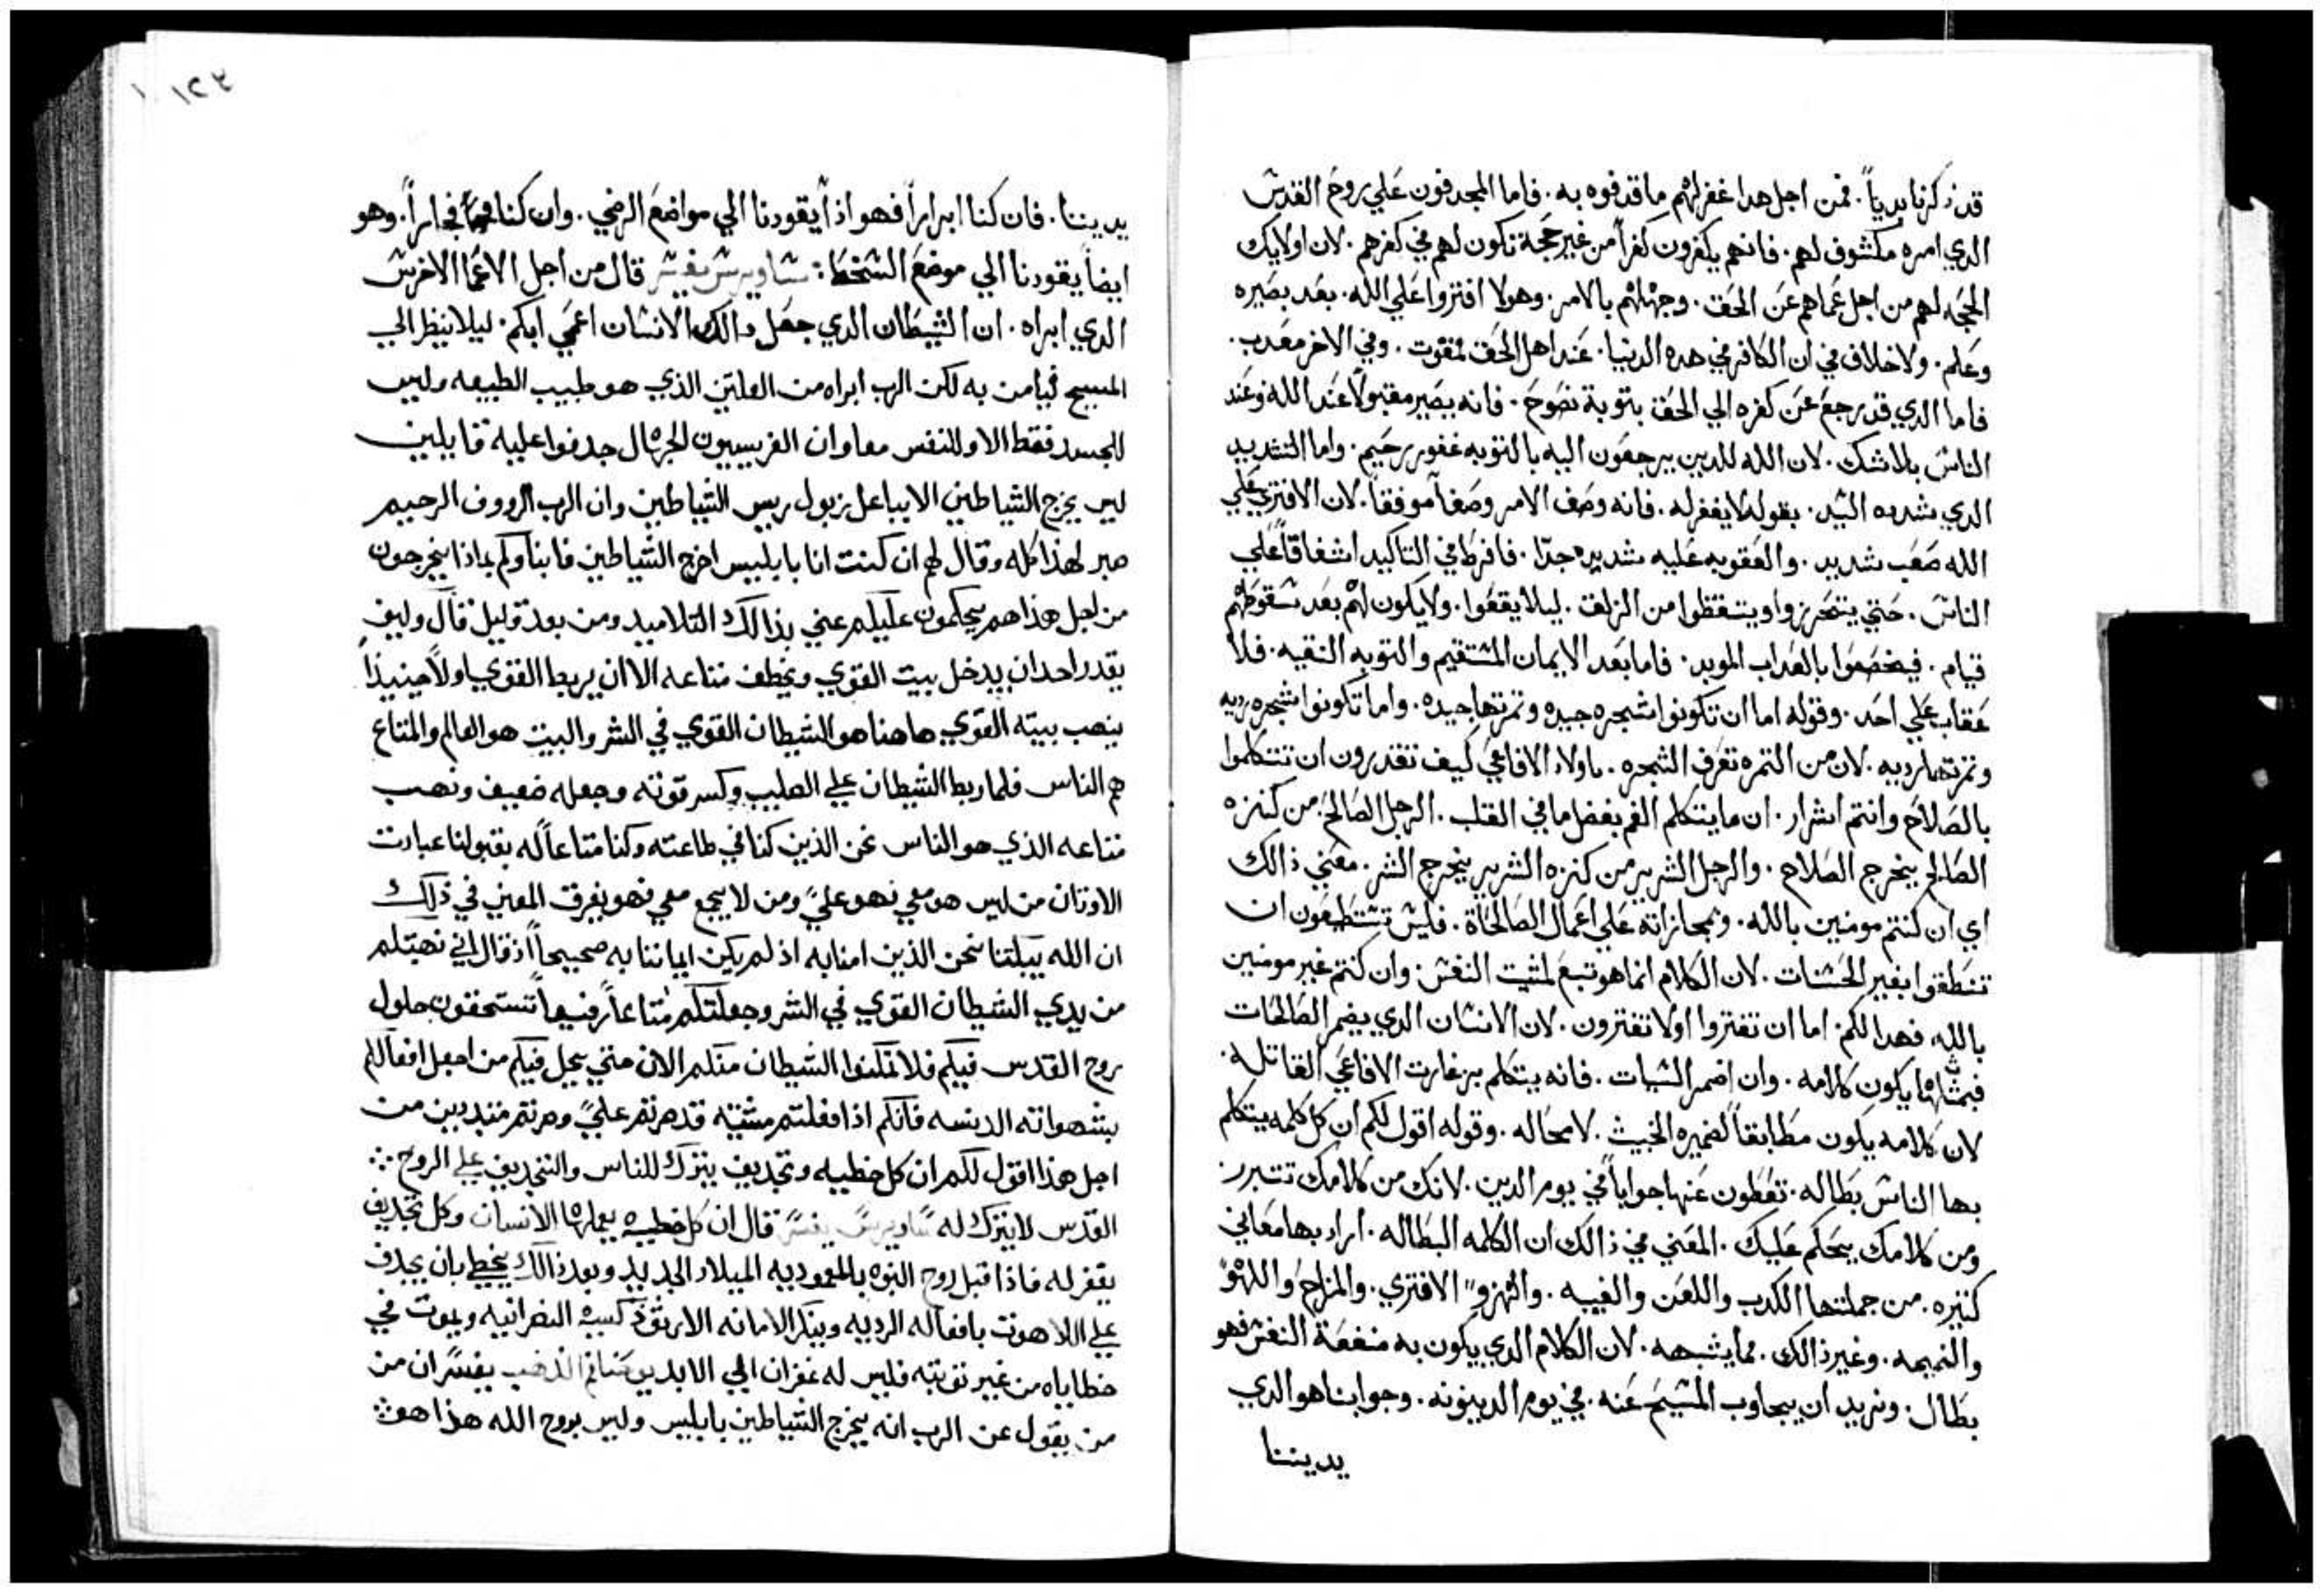 قد ذكرنا بدياً. فمن اجل هدا غفر لهم ما قدفوه به. فاما المجدفون علي روح القدس
الدي امره مكشوف لهم. فانهم يكفرون كفراً من غير حجة تكون لهم في كفرهم. لان اولايك
الحجه لهم من اجل عماهم عن الحق. وجهلهم بالامر. وهولا افتروا علي الله. بعد بصيره
وعلم. ولا خلاف في ان الكافر في هده الدنيا. عند اهل الحق ممقوت. وفي الاخر معدب.
فاما الدي قد رجع عن كفره الي الحق بتوبة نصوح. فانه يصير مقبولاً عند الله وعند
الناس بلا شك. لان الله للدين يرجعون اليه بالتوبه غفور رحيم. واما التشديد
الدي شدده السيد. بقوله لا يغفر له. فانه وصف الامر وصفاً موفقاً. لان الافتري علي
الله صعب شديد. والعقوبه عليه شديده جدًا. فافرط في التاكيد اشفاقاً علي
الناس. حتي يتحرزوا ويتيقظوا من الزلق. ليلا يقعوا. ولا يكون لهم بعد سقوطهم
قيام. فيخصعوا بالعداب الموبد. فاما بعد الايمان المستقيم والتوبه النقيه. فلا
عقاب علي احد. وقوله اما ان تكونوا شجره جيده وتمرتها جيده. واما تكونوا شجره رديه
وتمرتها رديه. لان من التمره تعرف الشجره. يا ولاد الافاعي كيف تقدرون ان تتكلموا
بالصلاح وانتم اشرار. ان ما يتكلم الفم بفضل ما في القلب. الرجل الصالح. من كنزه
الصالح يخرج الصلاح. والرجل الشرير من كنزه الشرير يخرج الشر. معني ذالك
اي ان كنتم مومنين بالله. وبمجازاته علي اعمال الصالحاة. فليس تستطيعون ان
تنطقوا بغير الحسنات. لان الكلام انما هو تبع لنيت النفس. وان كنتم غير مومنين
بالله. فهدا لكم. اما ان تفتروا اولا تفترون. لان الانسان الدي يضمر الصالحات
فبمثالها يكون كلامه. وان اضمر السيات. فانه يتكلم بزغارت الافاعي القاتله.
لان كلامه يكون مطابقاً لضميره الخبيث. لا محاله. وقوله اقول لكم ان كل كلمه يتكلم
بها الناس بطاله. تعطون عنها جواباً في يوم الدين. لانك من كلامك تتبرر
ومن كلامك يحكم عليك. المعني في ذالك ان الكلمه البطاله. اراد بها معاني
كتيره. من جملتها الكدب واللعن والغيبه. والتهزو الافتري. والمزاح واللهو
والنميمه. وغير ذالك. مما يشبهه. لان الكلام الدي يكون به منفعة النفس فهو
بطال. ونريد ان يجاوب المسيح عنه. في يوم الدينونه. وجوابنا هو الدي
يديننا
١٢٣
يديننا. فان كنا ابراراً فهو اذاً يقودنا الي مواضع الرضي. وان كنا فجاراً. وهو
ايضاً يقودنا الي موضع السخط: ساويرس يفسر قال من اجل الاعما الاخرس
الدي ابراه. ان الشيطان الدي جعل دالك الانسان اعمي ابكم. ليلا ينظر الي
المسيح فيامن به لكن الرب ابراه من العلتين الذي هو طبيب الطبيعه وليس
للجسد فقط الا وللنفس معا وان الفريسيون الجهال جدفوا عليه قايلين
ليس يخرج الشياطين الا بباعل زبول ريس الشياطين وان الرب الرووف الرحيم
صبر لهذا كله وقال لهم ان كنت انا بابليس اخرج الشياطين فابناوكم بماذا يخرجون
من اجل هذا هم يحكمون عليكم عني بذالك التلاميد ومن بعد قليل قال وليف
يقدر احد ان يدخل بيت القوي ويخطف متاعه الا ان يربط القوي اولاً حينيذاً
ينهب بيته القوي هاهنا هو الشيطان القوي في الشر والبيت هو العالم والمتاع
هم الناس فلما ربط الشيطان علي الصليب وكسر قوته وجعله ضعيف ونهب
متاعه الذي هو الناس نحن الذين كنا في طاعته وكنا متاعاً له بقبولنا عبادت
الاوتان من ليس هو معي فهو عليّ ومن لا يجمع معي فهو يفرق المعني في ذلك
ان الله يبكتنا نحن الذين امنا به اذ لم يكن ايماننا به صحيحاً اذ قال اني نهبتكم
من يدي الشيطان القوي في الشر وجعلتكم متاعاً رفيعاً تستحقون حلول
روح القدس فيكم فلا تمكنوا الشيطان منكم الان حتي يحل فيكم من اجل افعالكم
بشهواته الدنسه فانكم اذا فعلتم مشيته قد صرتم عليّ وصرتم متبددين من
اجل هذا اقول لكم ان كل خطيه وتجديف يترك للناس والتجديف علي الروح
القدس لا يترك له ساويرس يفسر قال ان كل خطيه يعملها الانسان وكل تجديف
يغفر له فاذا قبل روح البنوه بالمعموديه الميلاد الجديد وبعد ذالك يخطي بان يجدف
علي اللاهوت بافعاله الرديه وينكر الامانه الارتودكسيه النصرانيه ويموت في
خطاياه من غير توبته فليس له غفران الي الابد يوحنا فم الذهب يفسر ان من
من يقول عن الرب انه يخرج الشياطين بابليس وليس بروح الله هذا هو